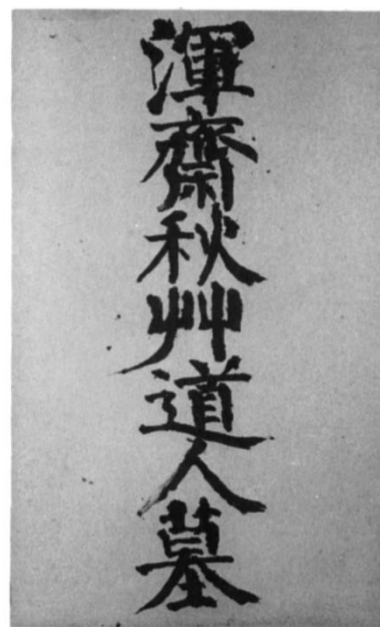 渾齋秋艸道人墓